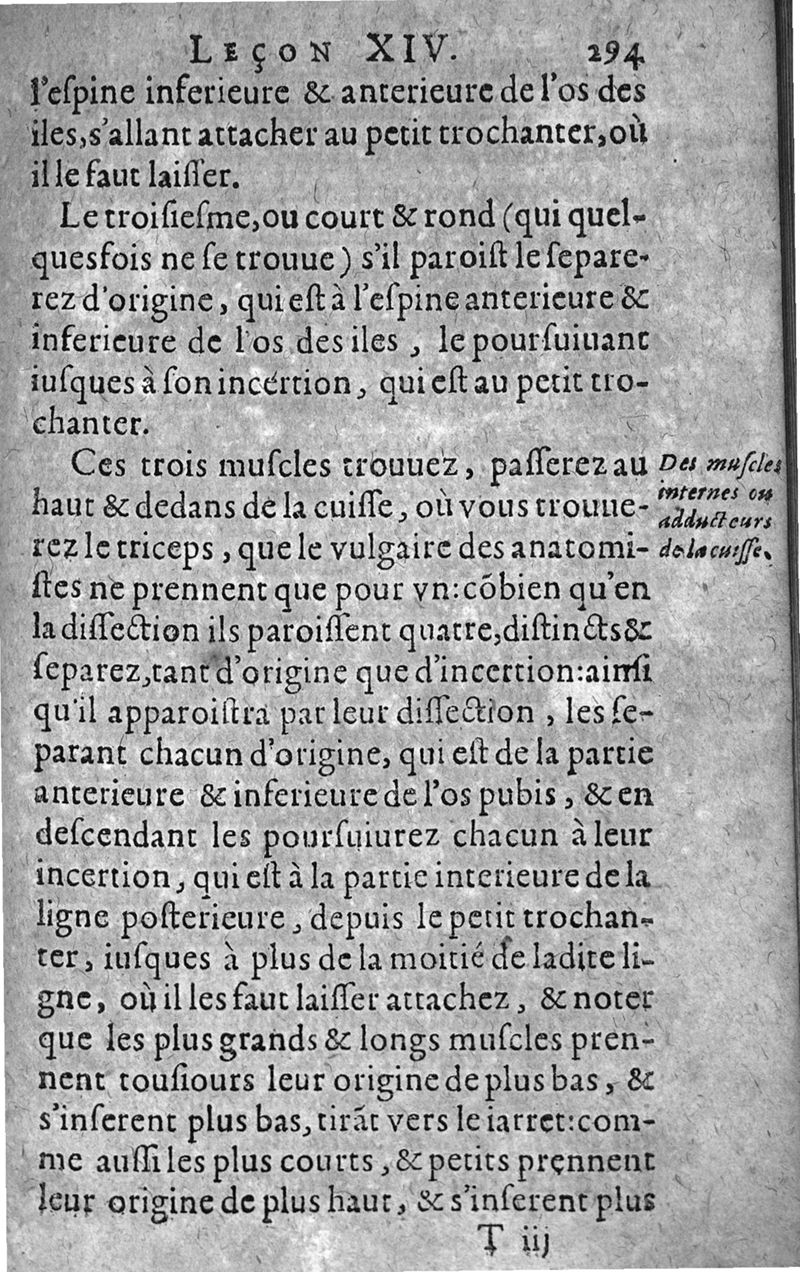 LEÇON XIV. 294
l'eſpine inferieure & anterieure de l'os des
iles, s'allant attacher au petit trochanter, où
il le faut laiſſer.
Le troiſieſme, ou court & rond (qui quel-
quesfois ne ſe trouue) s'il paroiſt le ſepare-
rez d'origine, qui eſt à l'eſpine anterieure &
inferieure de l'os des iles, le pourſuiuant
iuſques à ſon incértion, qui eſt au petit tro-
chanter.
Ces trois muſcles trouuez, paſſerez au
haut & dedans de la cuiſſe, où vous trouue-
rez le triceps, que le vulgaire des anatomi-
ſtes ne prennent que pour vn: cõbien qu'en
la diſſection ils paroiſſent quatre, diſtincts &
ſeparez, tant d'origine que d'incertion: ainſi
qu'il apparoiſtra par leur diſſection, les ſe-
parant chacun d'origine, qui eſt de la partie
anterieure & inferieure de l'os pubis, & en
deſcendant les pourſuiurez chacun à leur
incertion, qui eſt à la partie interieure de la
ligne poſterieure, depuis le petit trochan-
ter, iuſques à plus de la moitié de ladite li-
gne, où il les faut laiſſer attachez, & noter
que les plus grands & longs muſcles pren-
nent touſiours leur origine de plus bas, &
s'inſerent plus bas, tirãt vers le iarret: com-
me auſſi les plus courts, & petits prennent
leur origine de plus haut, & s'inſerent plus
T iij
Des muſcles
internes ou
adducteurs
de la cuiſſe.